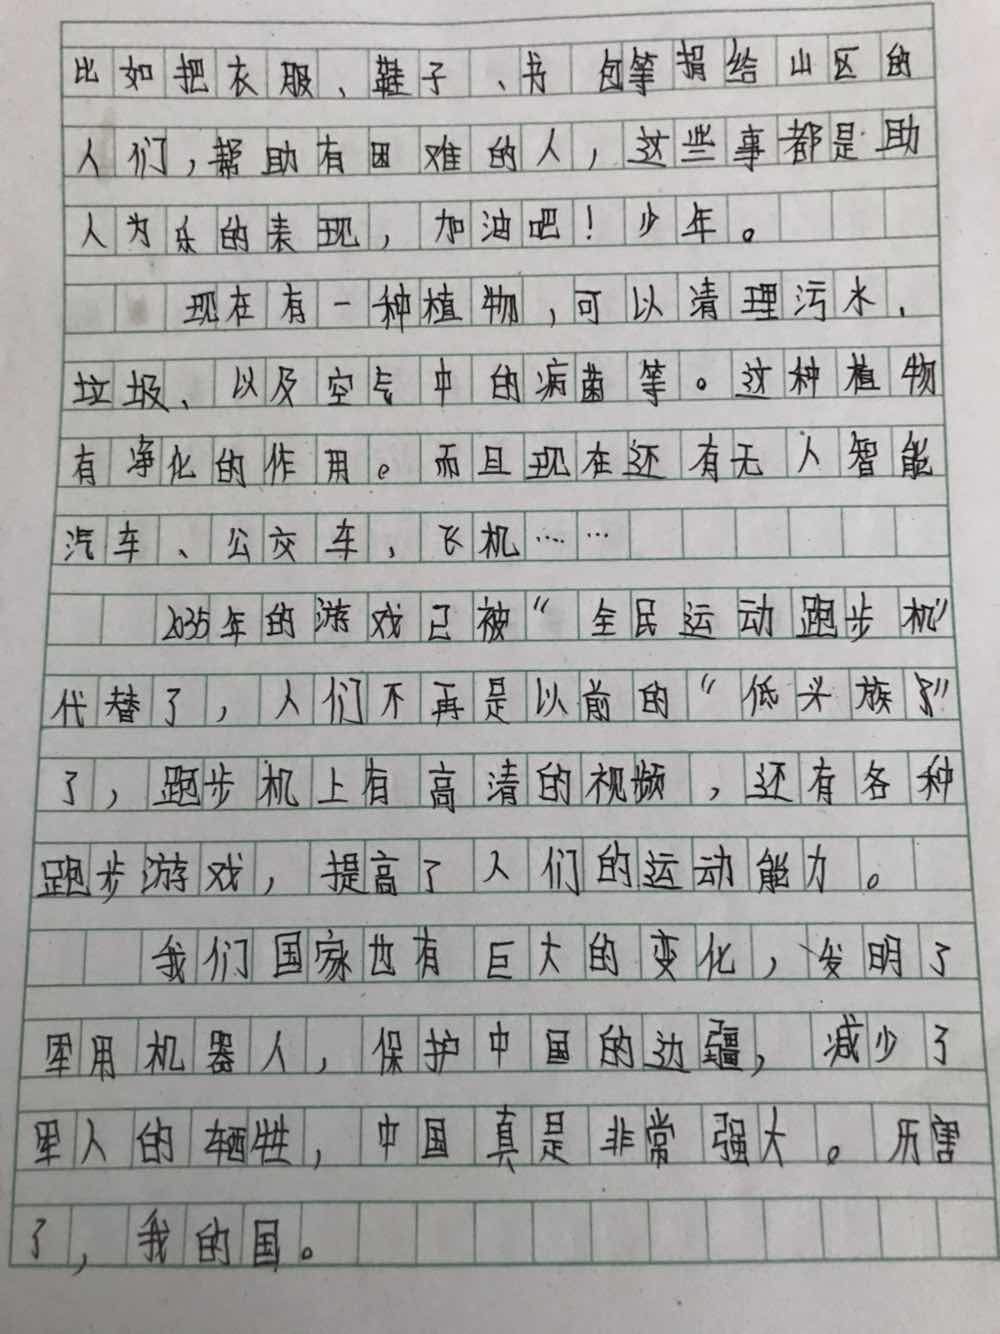 比如把衣服、鞋子、书包等捐给山区的
人们,帮助有困难的人,这些事都是助
人为乐的表现,加油吧!少年。
现在有一种植物,可以清理污水、
垃圾、以及空气中的病菌等。这种植物
有净化的作用。而且现在还有无人智能
汽车、公交车,飞机……
2035年的游戏已被“全民运动跑步机”
代替了,人们不再是以前的“低头族了”
了,跑步机上有高清的视频,还有各种
跑步游戏,提高了人们的运动能力。
我们国家也有巨大的变化,发明了
军用机器人,保护中国的边疆,减少了
军人的牺牲,中国真是非常强大。厉害
了,我的国。